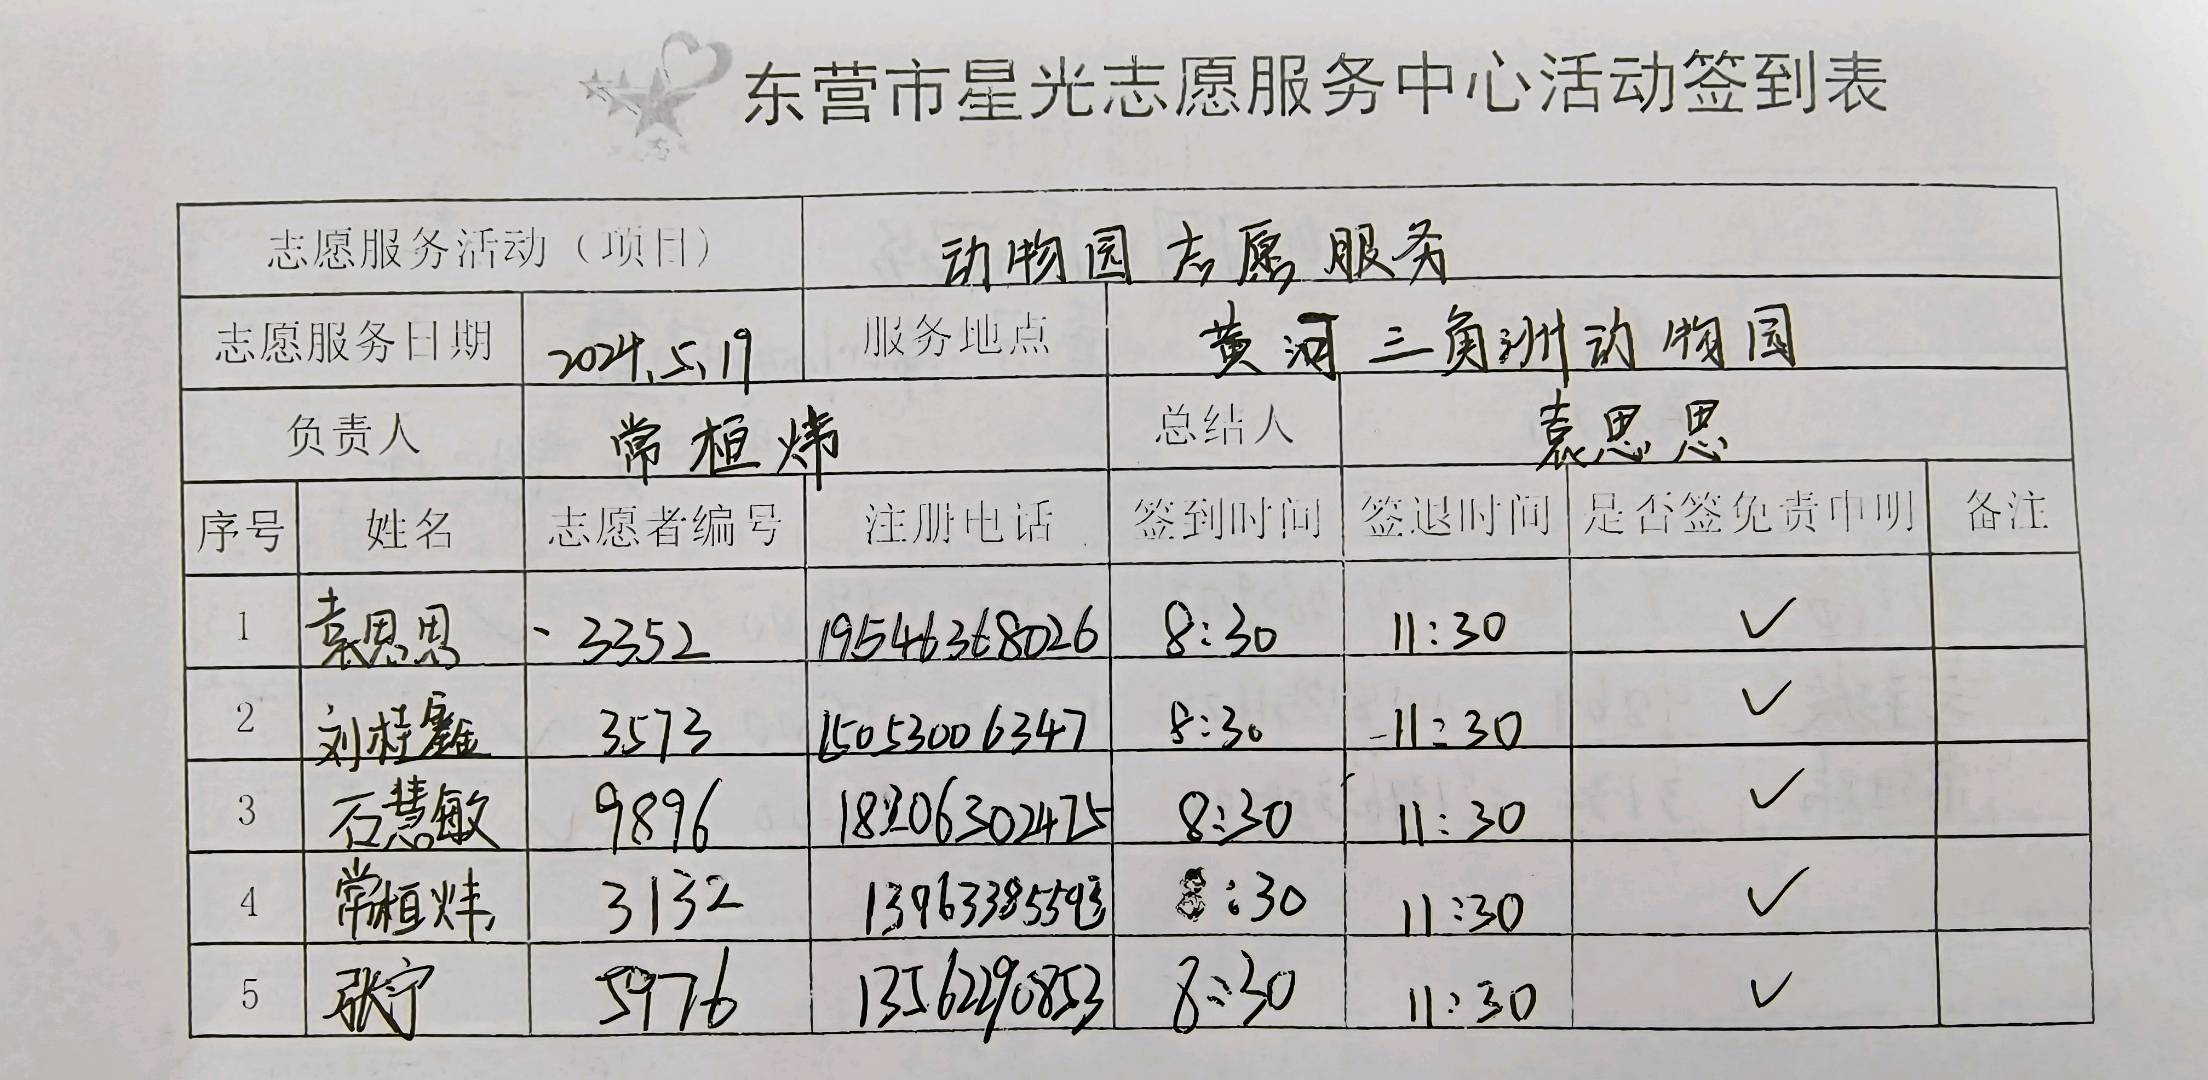 东营市星光志愿服务中心活动签到表
志愿服务活动（项目） 动物园志愿服务
志愿服务日期 2024.5.19 服务地点 黄河三角洲动物园
负责人 常桓炜 总结人 袁思思
序号 姓名 志愿者编号 注册电话 签到时间 签退时间 是否签免责申明 备注
1 袁思思 3352 19546368026 8:30 11:30 ✓
2 刘桂鑫 3573 15053006347 8:30 11:30 ✓
3 石慧敏 9896 18206302475 8:30 11:30 ✓
4 常桓炜 3132 13963385593 8:30 11:30 ✓
5 张宁 5976 13562290853 8:30 11:30 ✓